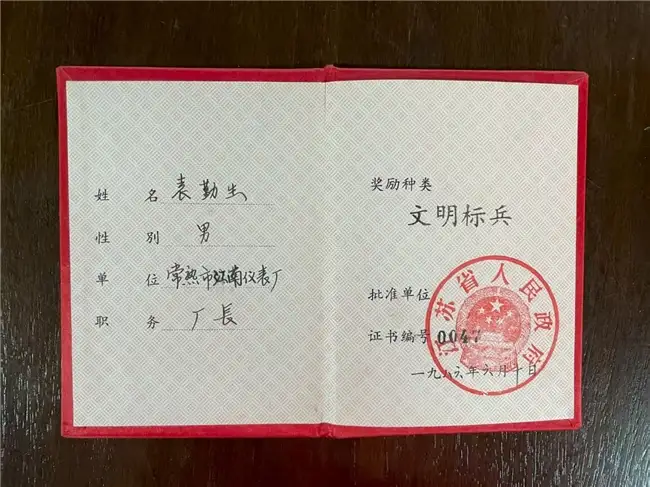 姓 名 袁勤生
性 别 男
单 位 常熟市江南仪表厂
职 务 厂長
奖励种类
文明标兵
批准单位
江苏省人民政府
证书编号 0047
一九八六年六月十日